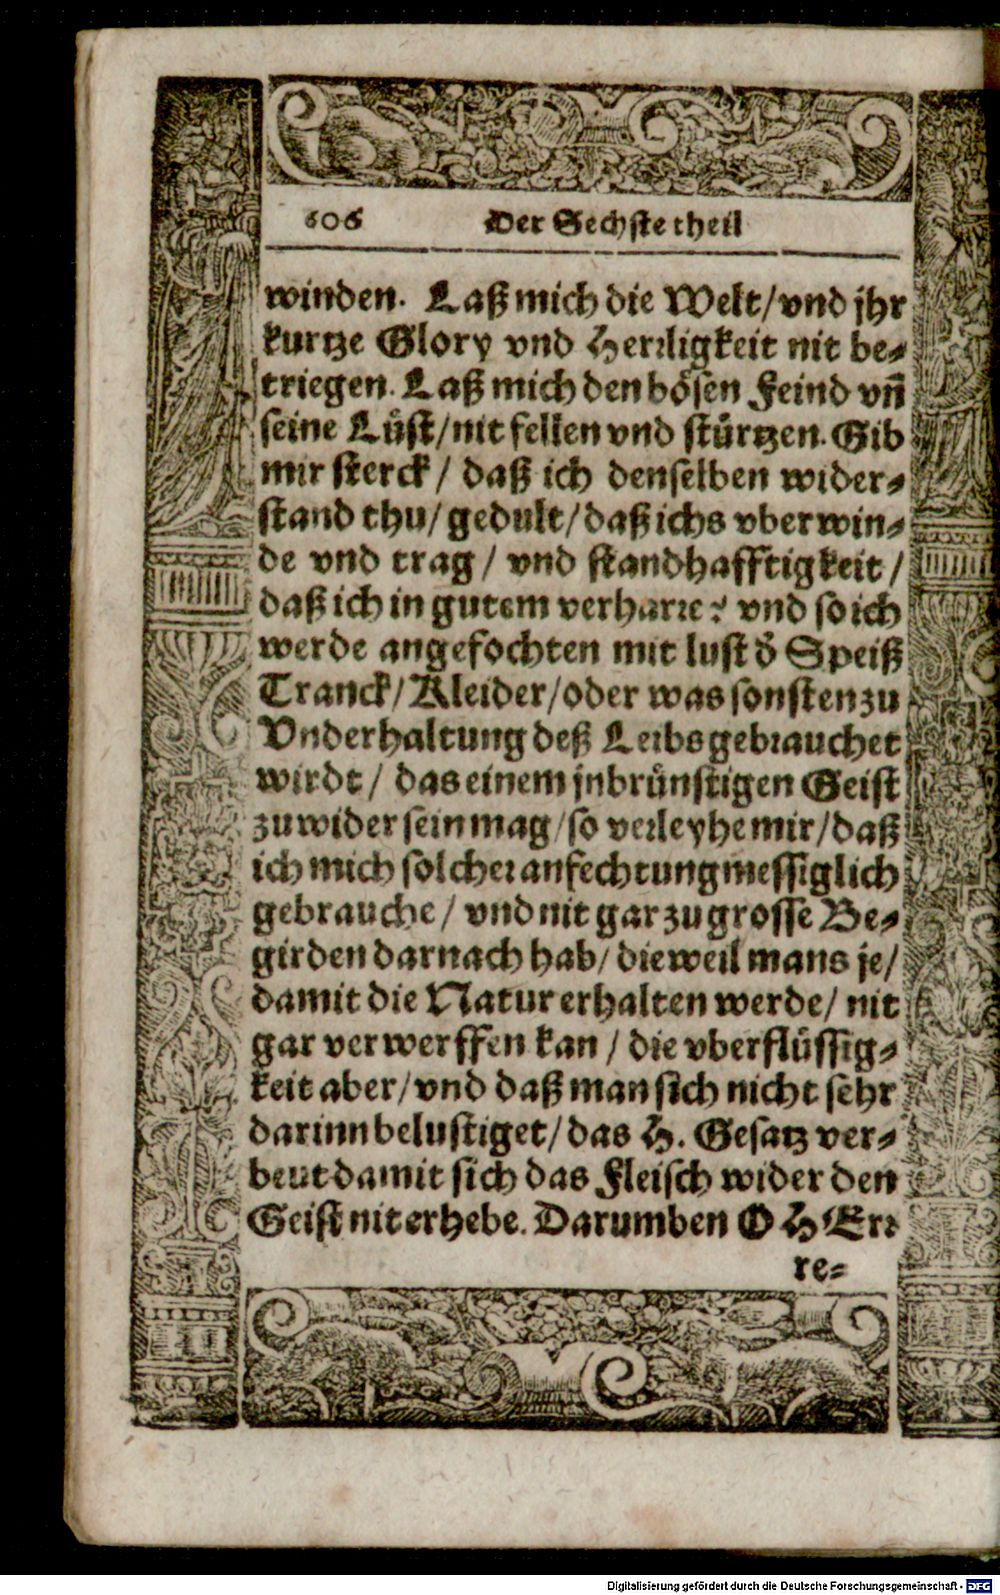 606 Der Sechste theil
winden. Laß mich die Welt/vnd jhr
kurtze Glory vnd Herꝛligkeit nit be⸗
triegen. Laß mich den boͤsen Feind vñ
seine Luͤst/nit fellen vnd stuͤrtzen. Gib
mir sterck/ daß ich denselben wider⸗
stand thu/ gedult/daß ichs vberwin⸗
de vnd trag/ vnd standhafftigkeit/
daß ich in gutem verharꝛe: vnd so ich
werde angefochten mit lust d' Speiß
Tranck/Kleider/oder was sonsten zu
Vnderhaltung deß Leibs gebꝛauchet
wirdt/ das einem jnbruͤnstigen Geist
zuwider sein mag/so verleyhe mir/daß
ich mich solcheꝛ anfechtung messiglich
gebrauche/ vnd nit gar zu grosse Be⸗
girden darnach hab/ dieweil mans je/
damit die Natur erhalten werde/ nit
gar verwerffen kan/ die vberfluͤssig⸗
keit aber/vnd daß man sich nicht sehr
darinn belustiget/das H. Gesatz ver⸗
beut damit sich das Fleisch wider den
Geist nit erhebe. Darumben O HErꝛ
re⸗
Digitalisierung gefördert durch die Deutsche Forschungsgemeinschaft - DFG